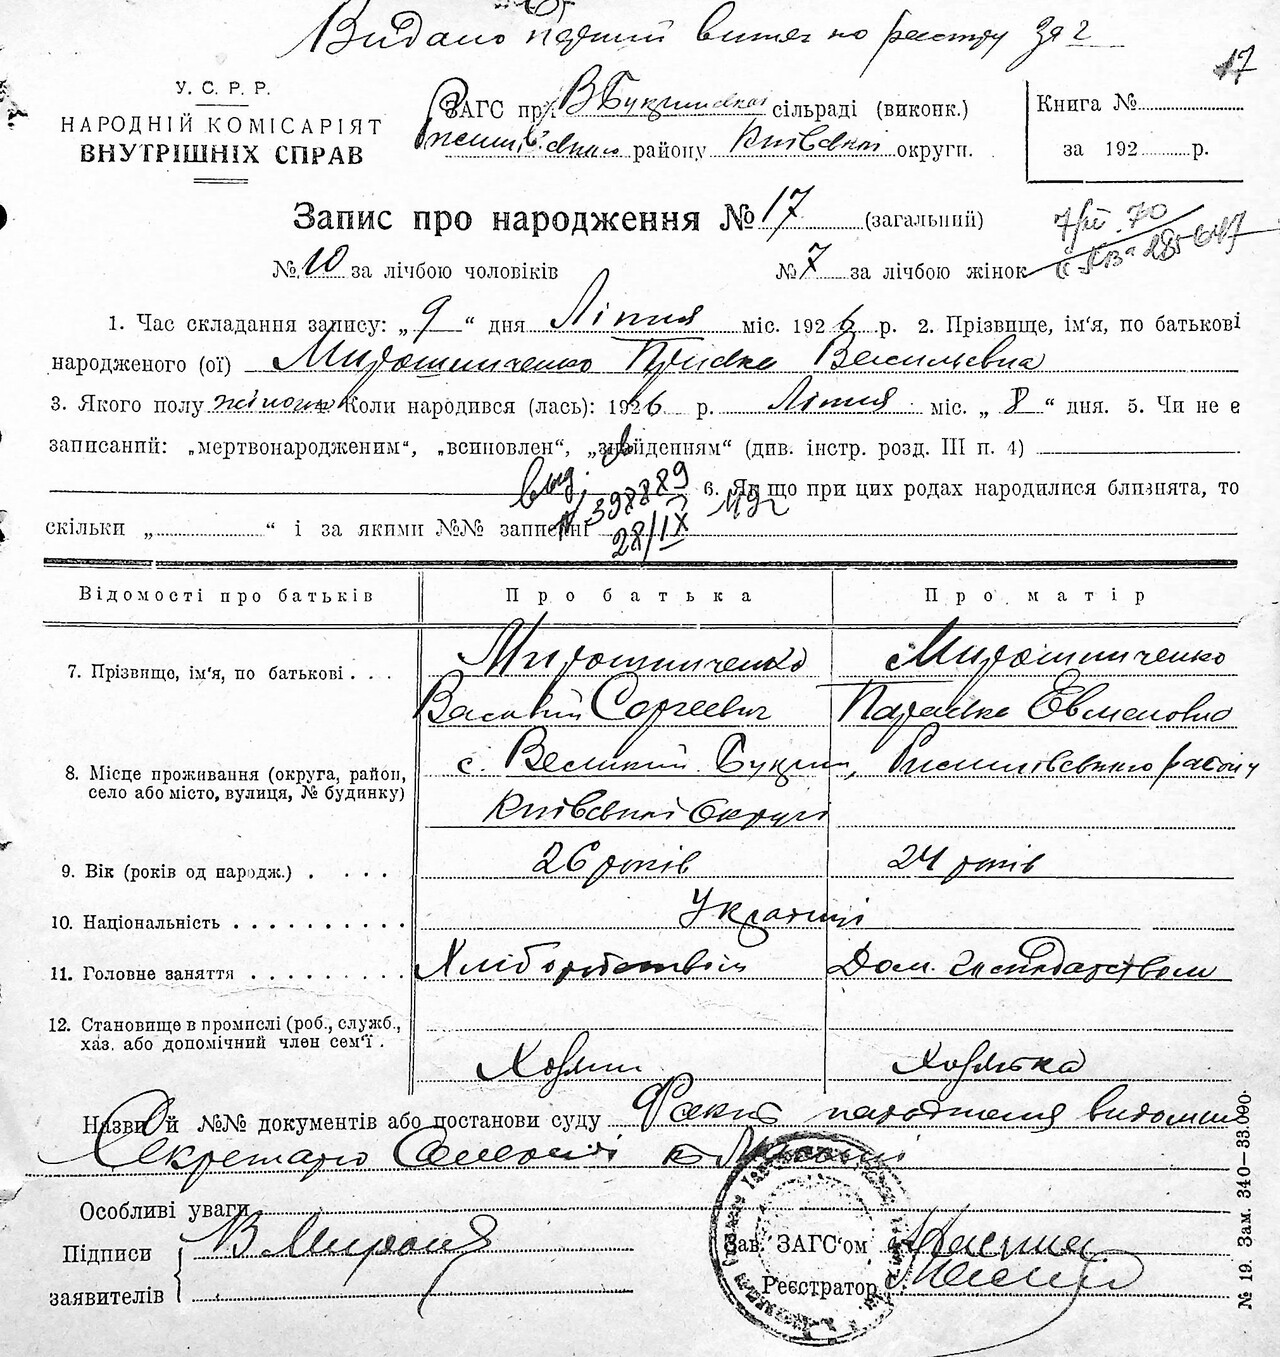 Видано витяг по реєстру за 2
17
У. С. Р. Р.
НАРОДНІЙ КОМІСАРІЯТ
ВНУТРІШНІХ СПРАВ
ЗАГС при сільраді (виконк.)
району Київської округи.
Книга №
за 192 р.
Запис про народження № 17 (загальний)
№ 10 за лічбою чоловіків № 7 за лічбою жінок
1. Час складання запису: „ 9 “ дня Літня міс. 1926 р. 2. Прізвище, ім'я, по батькові
народженого (ої) Мирошниченко Василієвна
3. Якого полу жіночи 4. Коли народився (лась): 1926 р. Літня міс. „ 8 “ дня. 5. Чи не є
записаний: „мертвонародженим“, „всиновлен“, „знайденням“ (див. інстр. розд. III п. 4)
выд.
6. Якщо при цих родах народилися близнята, то
№ 398889
скільки „ “ і за якими №№ записені
28/IX
Відомості про батьків Про батька Про матір
7. Прізвище, ім'я, по батькові . . . Мирошниченко Мирошниченко
Василий Сергеевич Параска Евменовна
8. Місце проживання (округа, район,
село або місто, вулиця, № будинку)
с. Великий Букрин, району
Київської Округи
9. Вік (років од народж.) . . . . 26 років 24 років
10. Національність . . . . . . . . . . Українці
11. Головне заняття . . . . . . . . . Хліборобством Дом. господарством
12. Становище в промислі (роб., служб.,
хаз. або допомічний член сем'ї .
Хозяин Хозяйка
Назви й №№ документів або постанови суду Факт народження видомий
Секретарю
Особливі уваги
Підписи
заявителів
В Мироня
Зав. ЗАГС'ом
Реєстратор
№ 19. Зам. 340—33.000.